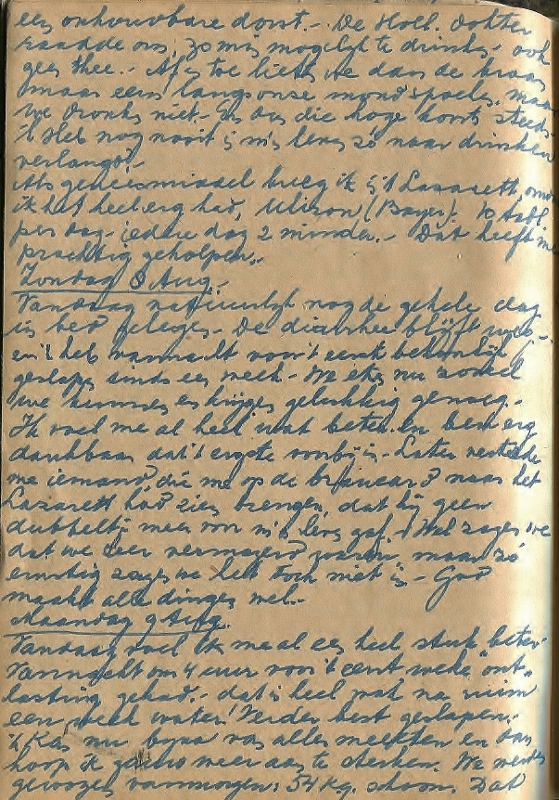 een onhoudbare dorst.- De Holl. dokter
raadde ons, zo min mogelijk te drinken, ook
geen thee.- Af en toe lieten we dan de kraan
maar eens langs onze mond spoelen, maar
we dronken niet.- En dus die hoge koorts steeds
'k Heb nog nooit in m'n leven zó naar drinken
verlangd.-
Als geneesmiddel kreeg ik in 't Lazarett, omdat
ik het heel erg had, Uliron (Bayer). 10 tabl.
per dag- iedere dag 2 minder.- Dat heeft me
prachtig geholpen.-
Zondag 8 Aug.-
Vandaag natuurlijk nog de gehele dag
in bed gelegen- De diarrhee blijft
en 'k heb vannacht voor 't eerst behoorlijk
geslapen sinds een week- We eten nu zoveel
we kunnen en krijgen gelukkig genoeg.-
Ik voel me al heel wat beter en ben erg
dankbaar dat 't ergste voorbij is- Later vertelde
me iemand die me op de brancard naar het
Lazarett had zien brengen, dat hij geen
dubbeltje meer voor m'n leven gaf. Wel zagen we
dat we zeer vermagerd waren, maar zó
ernstig zagen we het toch niet in- God
maakt alle dingen wel.-
Maandag 9 Aug.
Vandaag voel ik me al een heel stuk beter-
Vannacht om 4 uur voor 't eerst weer "ont-
lasting gehad.- dat is heel wat na ruim
een week water! Verder best geslapen.-
'k Kan nu bijna van alles meeëten en dan
hoop ik gauw weer aan te sterken. We werden
gewogen vanmorgen: 54 kg. schoon. Dat